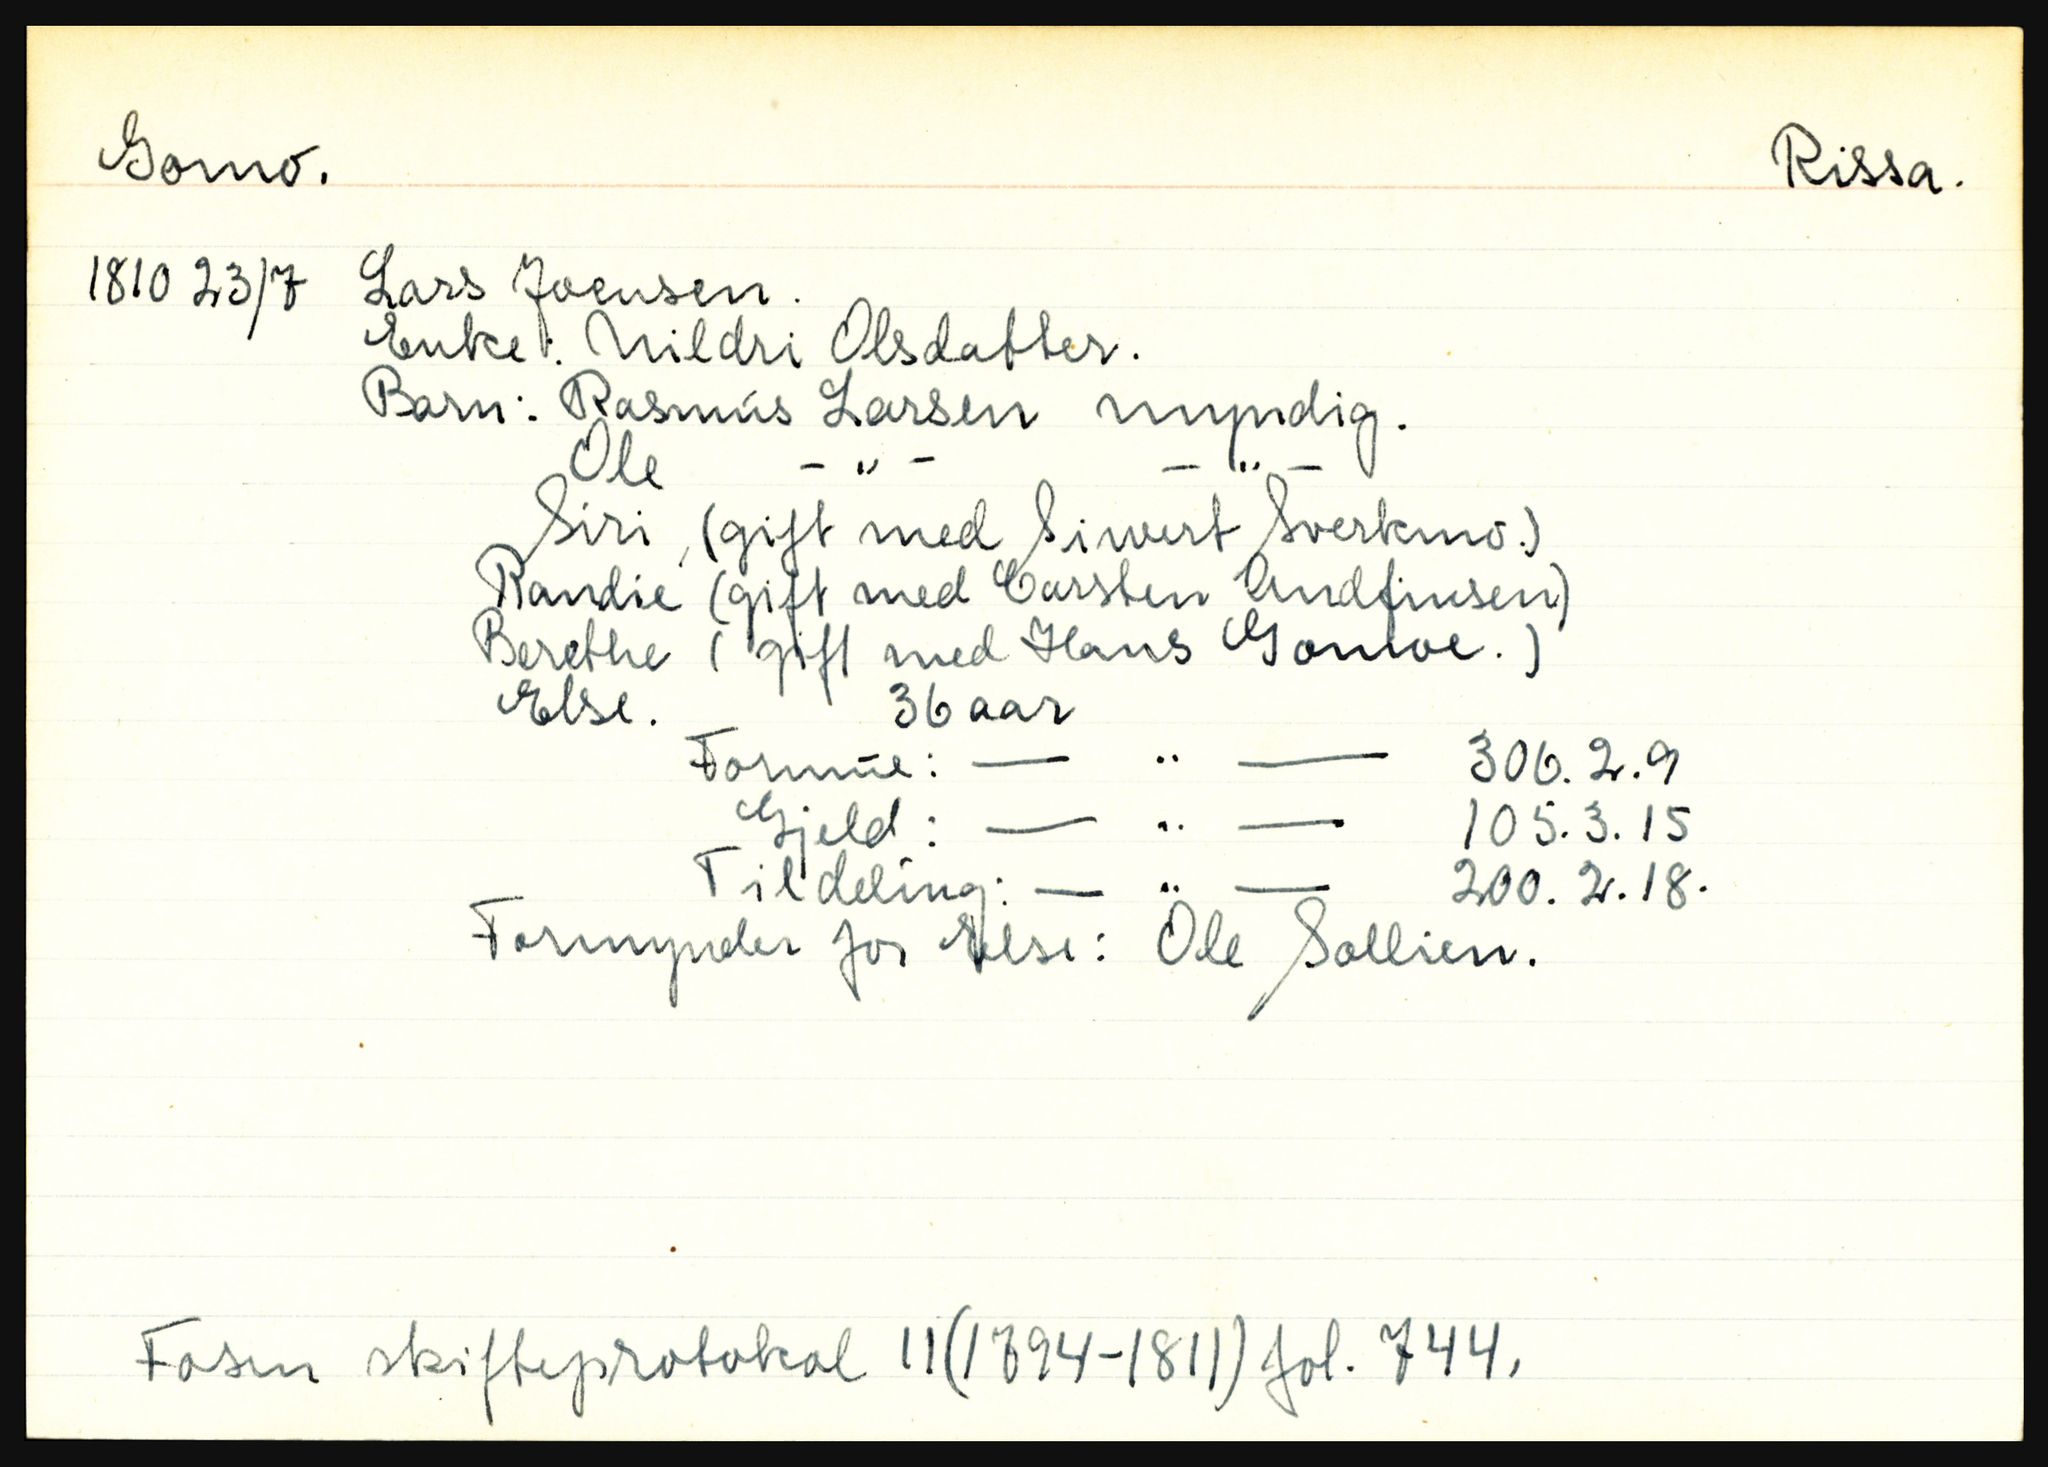 Gomo. Rissa.
1810 23/7 Lars Joensen.
Enke: Mildri Olsdatter.
Barn: Rasmus Larsen myndig.
Ole - " - - " -
Siri, (gift med Siwert Sverkmo.)
Randie (gift med Carsten Andfinsen)
Berethe (gift med Hans Gomoe.)
Else. 36 aar
Formue: — " — 306. 2. 9
Gjeld: — " — 105. 3. 15
Tildeling: — " — 200. 2. 18.
Formynder for Else: Ole Sollien.
Fosen skifteprotokol 11 (1794-1811) fol. 744.